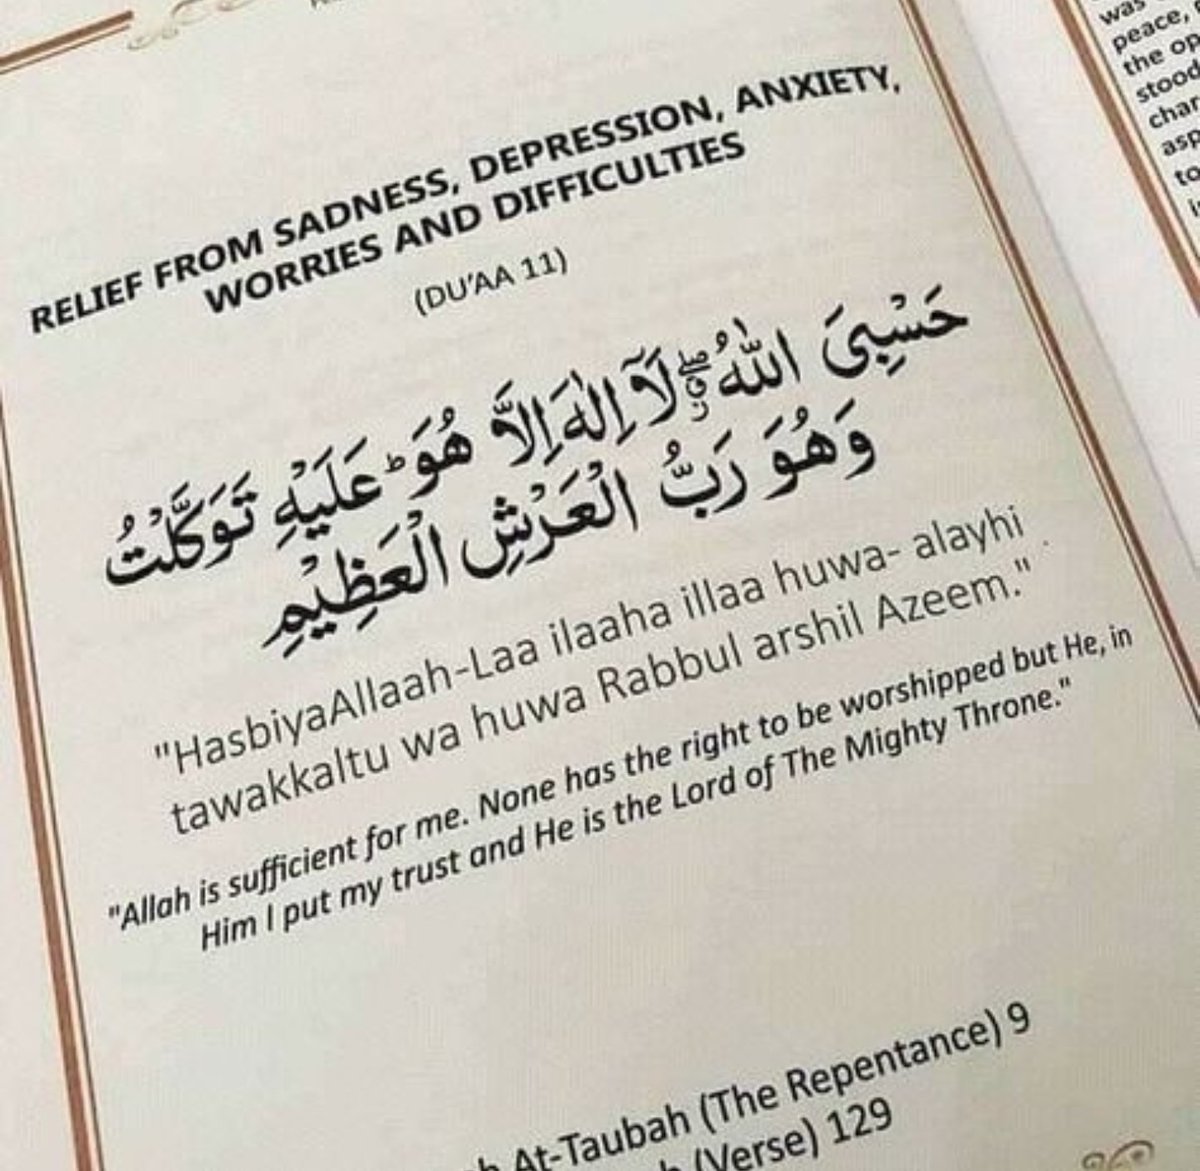 RELIEF FROM SADNESS, DEPRESSION, ANXIETY,
WORRIES AND DIFFICULTIES
(DU'AA 11)
حَسْبِیَ اللّٰهُ ۖ لَاۤ اِلٰهَ اِلَّا هُوَ ؕ عَلَیْهِ تَوَكَّلْتُ
وَهُوَ رَبُّ الْعَرْشِ الْعَظِیْمِ
"HasbiyaAllaah-Laa ilaaha illaa huwa- alayhi
tawakkaltu wa huwa Rabbul arshil Azeem."
"Allah is sufficient for me. None has the right to be worshipped but He, in
Him I put my trust and He is the Lord of The Mighty Throne."
At-Taubah (The Repentance) 9
(Verse) 129
was
peace,
the
stood
to